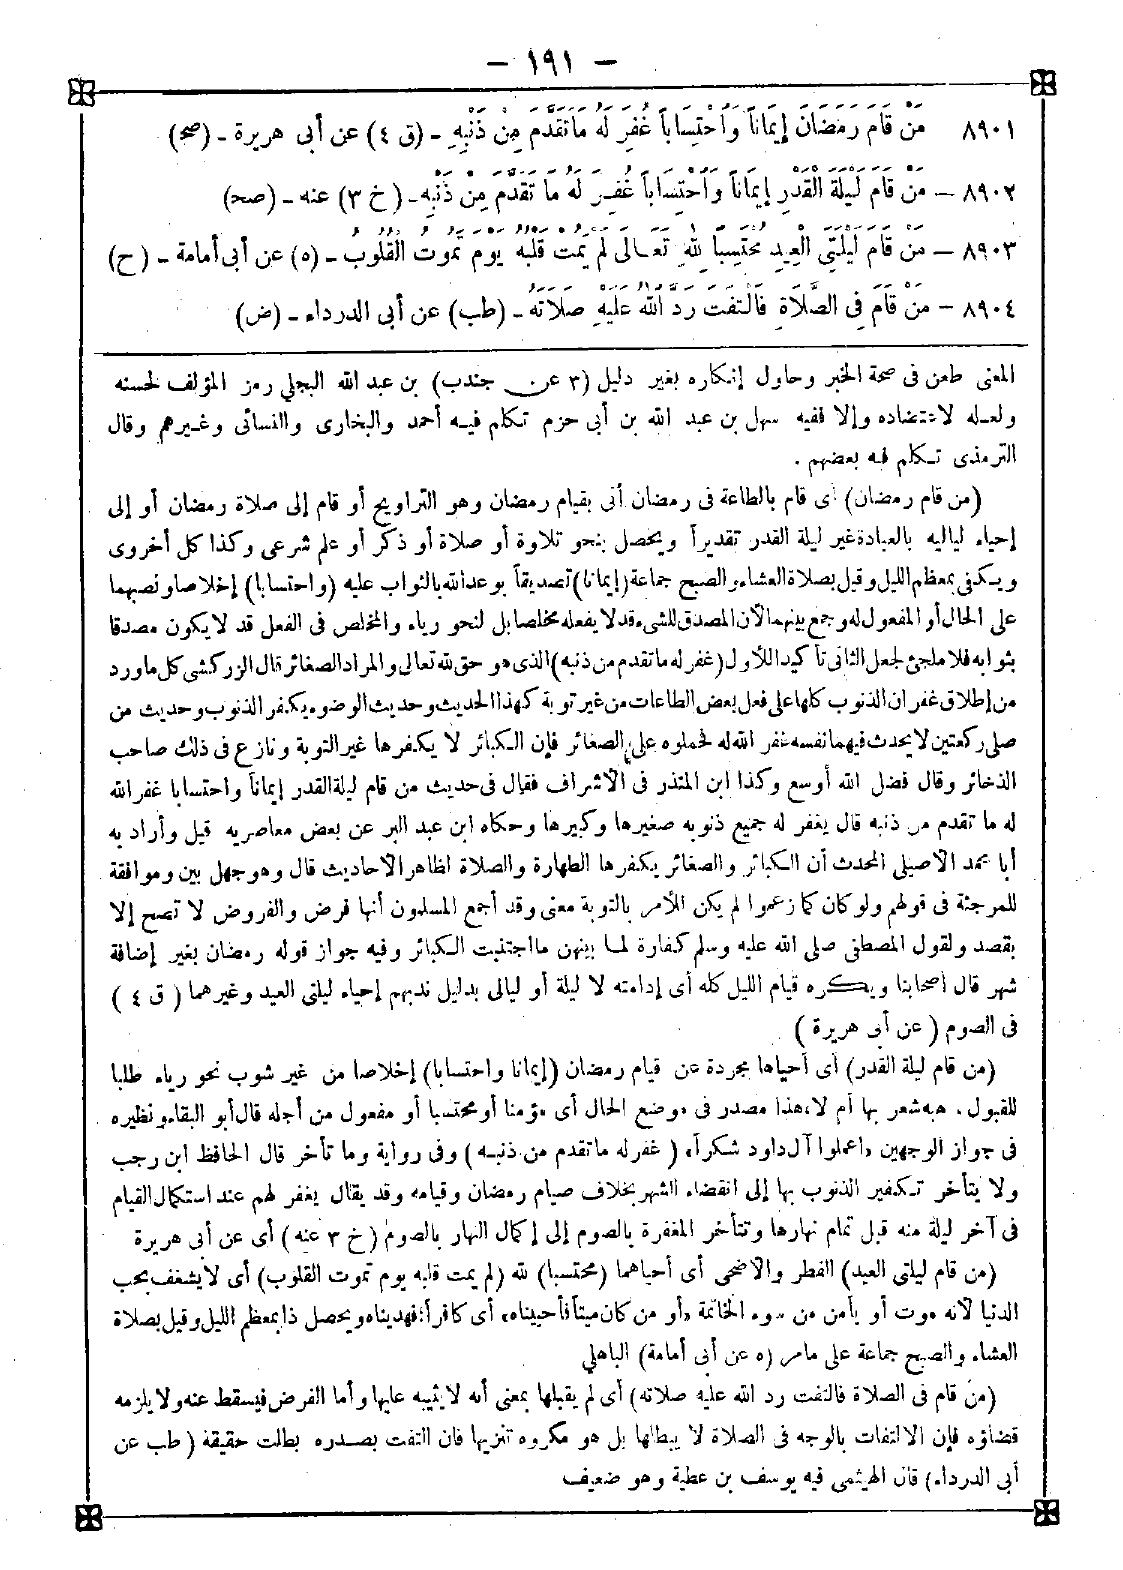 - ١٩١ -
٨٩٠١ مَنْ قَامَ رَمَضَانَ إِيمَاناً وَاحْتِسَاباً غُفِرَ لَهُ مَا تَقَدَّمَ مِنْ ذَنْبِهِ - (ق ٤) عن أبى هريرة - (صح)
٨٩٠٢ - مَنْ قَامَ لَيْلَةَ الْقَدْرِ إِيمَاناً وَاحْتِسَاباً غُفِرَ لَهُ مَا تَقَدَّمَ مِنْ ذَنْبِهِ - (خ ٣) عنه - (صح)
٨٩٠٣ - مَنْ قَامَ لَيْلَتَيِ الْعِيدِ مُحْتَسِباً لِلهِ تَعَالَى لَمْ يَمُتْ قَلْبُهُ يَوْمَ تَمُوتُ الْقُلُوبُ - (ه) عن أبى أمامة - (ح)
٨٩٠٤ - مَنْ قَامَ فِى الصَّلَاةِ فَالْتَفَتَ رَدَّ اللهُ عَلَيْهِ صَلَاتَهُ - (طب) عن أبى الدرداء - (ض)
المعنى طعن فى صحة الخبر وحاول إنكاره بغير دليل (٣ عن جندب) بن عبد الله البجلي رمز المؤلف لحسنه
ولعله لاعتضاده وإلا ففيه سهل بن عبد الله بن أبى حزم تكلم فيه أحمد والبخارى والنسائى وغيرهم وقال
الترمذى تكلم فيه بعضهم .
(من قام رمضان) أى قام بالطاعة فى رمضان أتى بقيام رمضان وهو التراويح أو قام إلى صلاة رمضان أو إلى
إحياء لياليه بالعبادة غير ليلة القدر تقديراً ويحصل بنحو تلاوة أو صلاة أو ذكر أو علم شرعى وكذا كل أخروى
ويكفى بمعظم الليل وقيل بصلاة العشاء والصبح جماعة (إيمانا) تصديقاً بوعد الله بالثواب عليه (واحتسابا) إخلاصا ونصبهما
على الحال أو المفعول له وجمع بينهما لأن المصدق للشىء قد لا يفعله مخلصا بل لنحو رياء والمخلص فى الفعل قد لا يكون مصدقا
بثوابه فلا ملجئ لجعل الثانى تأكيدا للأول (غفر له ما تقدم من ذنبه) الذى هو حق لله تعالى والمراد الصغائر قال الزركشى كل ما ورد
من إطلاق غفران الذنوب كلها على فعل بعض الطاعات من غير توبة كهذا الحديث وحديث الوضوء يكفر الذنوب وحديث من
صلى ركعتين لا يحدث فيهما نفسه غفر الله له فحملوه على الصغائر فإن الكبائر لا يكفرها غير التوبة ونازع فى ذلك صاحب
الذخائر وقال فضل الله أوسع وكذا ابن المنذر فى الاشراف فقال فى حديث من قام ليلة القدر إيماناً واحتسابا غفر الله
له ما تقدم من ذنبه قال يغفر له جميع ذنوبه صغيرها وكبيرها وحكاه ابن عبد البر عن بعض معاصريه قيل وأراد به
أبا محمد الاصيلى المحدث أن الكبائر والصغائر يكفرها الطهارة والصلاة لظاهر الاحاديث قال وهو جهل بين وموافقة
للمرجئة فى قولهم ولو كان كما زعموا لم يكن للأمر بالتوبة معنى وقد أجمع المسلمون أنها فرض والفروض لا تصح إلا
بقصد ولقول المصطفى صلى الله عليه وسلم كفارة لما بينهن ما اجتنبت الكبائر وفيه جواز قوله رمضان بغير إضافة
شهر قال أصحابنا ويكره قيام الليل كله أى إدامته لا ليلة أو ليالى بدليل ندبهم إحياء ليلتى العيد وغيرهما ( ق ٤ )
فى الصوم ( عن أبى هريرة )
(من قام ليلة القدر) أى أحياها مجردة عن قيام رمضان (إيمانا واحتسابا) إخلاصا من غير شوب نحو رياء طلبا
للقبول، هبه شعر بها أم لا، هذا مصدر فى موضع الحال أى مؤمنا أو محتسبا أو مفعول من أجله قال أبو البقاء ونظيره
فى جواز الوجهين «اعملوا آل داود شكراً» ( غفر له ما تقدم من ذنبه ) وفى رواية وما تأخر قال الحافظ ابن رجب
ولا يتأخر تكفير الذنوب بها إلى انقضاء الشهر بخلاف صيام رمضان وقيامه وقد يقال يغفر لهم عند استكمال القيام
فى آخر ليلة منه قبل تمام نهارها وتتأخر المغفرة بالصوم إلى إكمال النهار بالصوم ( خ ٣ عنه ) أى عن أبى هريرة
(من قام ليلتى العيد) الفطر والاضحى أى أحياهما (محتسبا) لله (لم يمت قلبه يوم تموت القلوب) أى لا يشغف بحب
الدنيا لأنه موت أو يأمن من سوء الخاتمة «أو من كان ميتاً فأحييناه» أى كافراً فهديناه ويحصل ذا بمعظم الليل وقيل بصلاة
العشاء والصبح جماعة على مامر (ه عن أبى أمامة) الباهلي
(من قام فى الصلاة فالتفت رد الله عليه صلاته) أى لم يقبلها بمعنى أنه لا يثيبه عليها وأما الفرض فيسقط عنه ولا يلزمه
قضاؤه فإن الالتفات بالوجه فى الصلاة لا يبطلها بل هو مكروه تنزيها فان التفت بصدره بطلت حقيقة ( طب عن
أبى الدرداء) قال الهيثمى فيه يوسف بن عطية وهو ضعيف